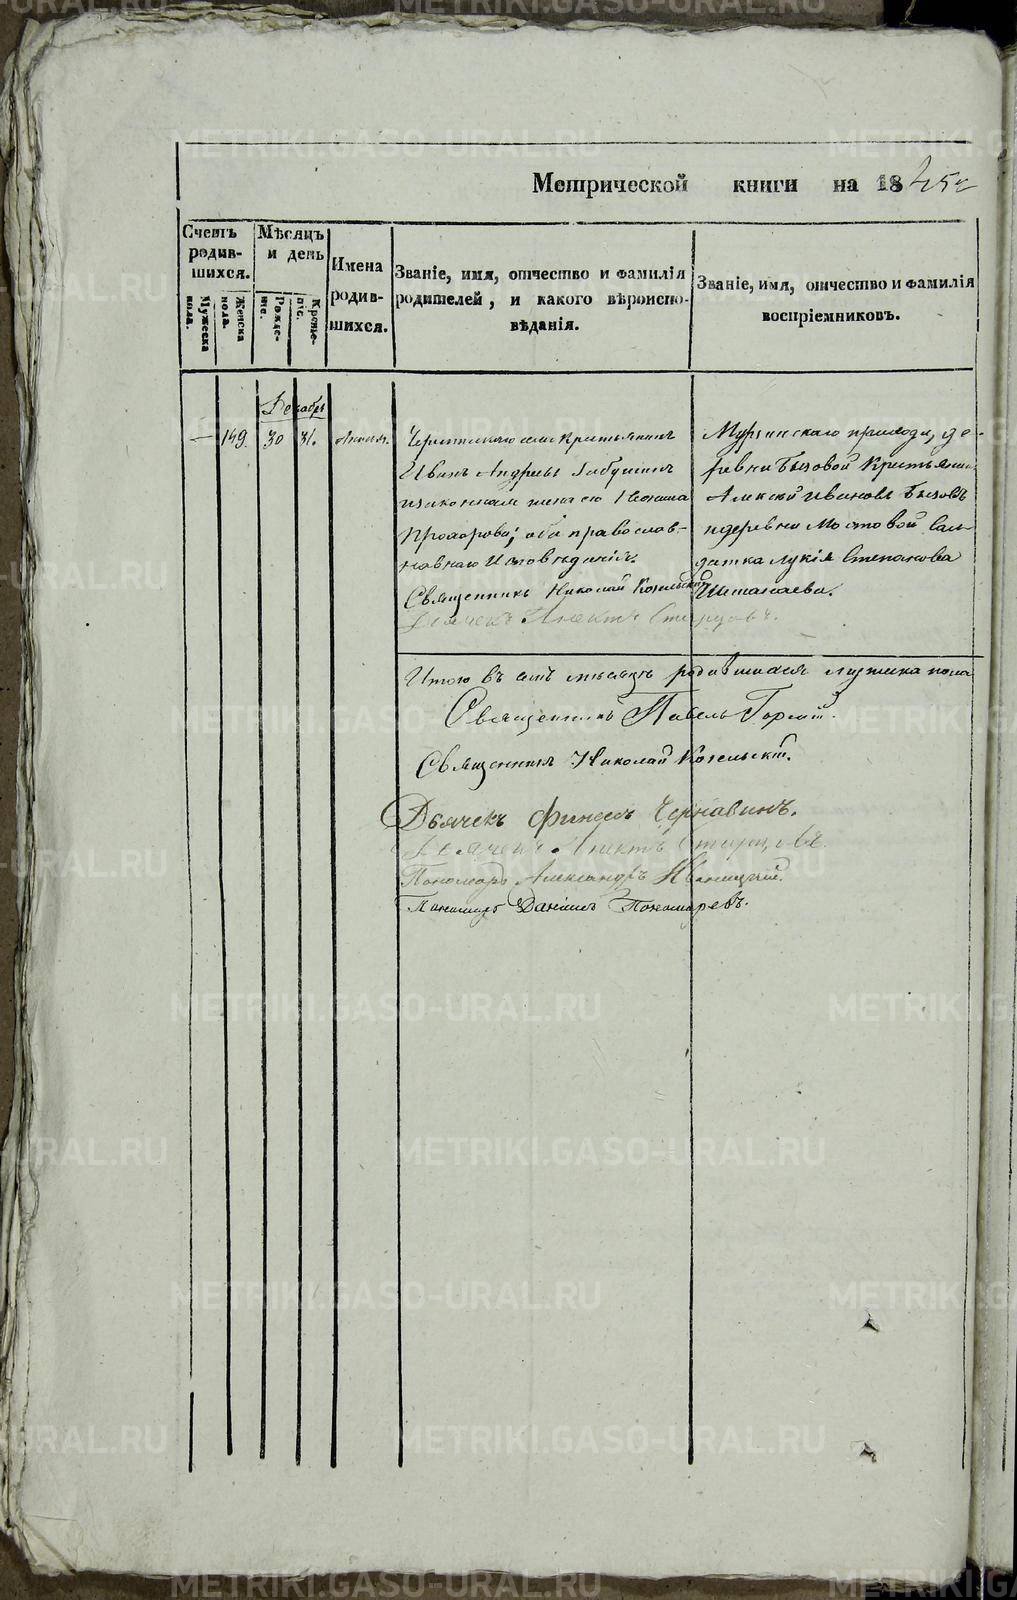 Метрической книги на 1845 г
Счетъ родив-шихся.
Мужеска пола.
Женска пола.
Мѣсяцъ и день
Рожде-ніе.
Креще-ніе.
Имена родив-шихся.
Званіе, имя, отчество и фамилія
родителей, и какого вѣроиспо-
вѣданія.
Званіе, имя, отчество и фамилія
воспріемниковъ.
Декабрь
— 149. 30 31.
села крестьянин
Иванъ Андреевъ
законная жена его
Прохорова; оба православ-
наго Исповѣданія.
Священникъ Николай Козельский
Дьячекъ
Мурзинскаго прихода, де-
ревни Бызовой Крестьянин
Алексѣй Ивановъ Бызовъ
и деревни Мостовой сол-
датка Лукія Степанова
Итого въ семъ мѣсяцѣ родившихся мужеска пола
Священникъ Павелъ
Священникъ Николай Козельскій.
Дьячекъ Финеесъ Чернавинъ.
Дьячекъ
Пономарь Александръ
Пономарь Даніилъ Пономаревъ.
METRIKI.GASO-URAL.RU